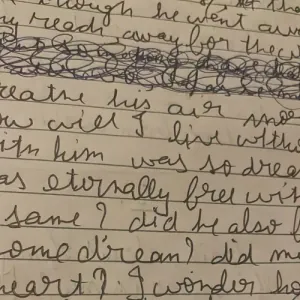 though he went aw
my reach away for the w
eathe his air
ow will I live witho
ith him was so drea
as eternally free wit
same? did he also
ome dream? did m
heart? I wonder ho